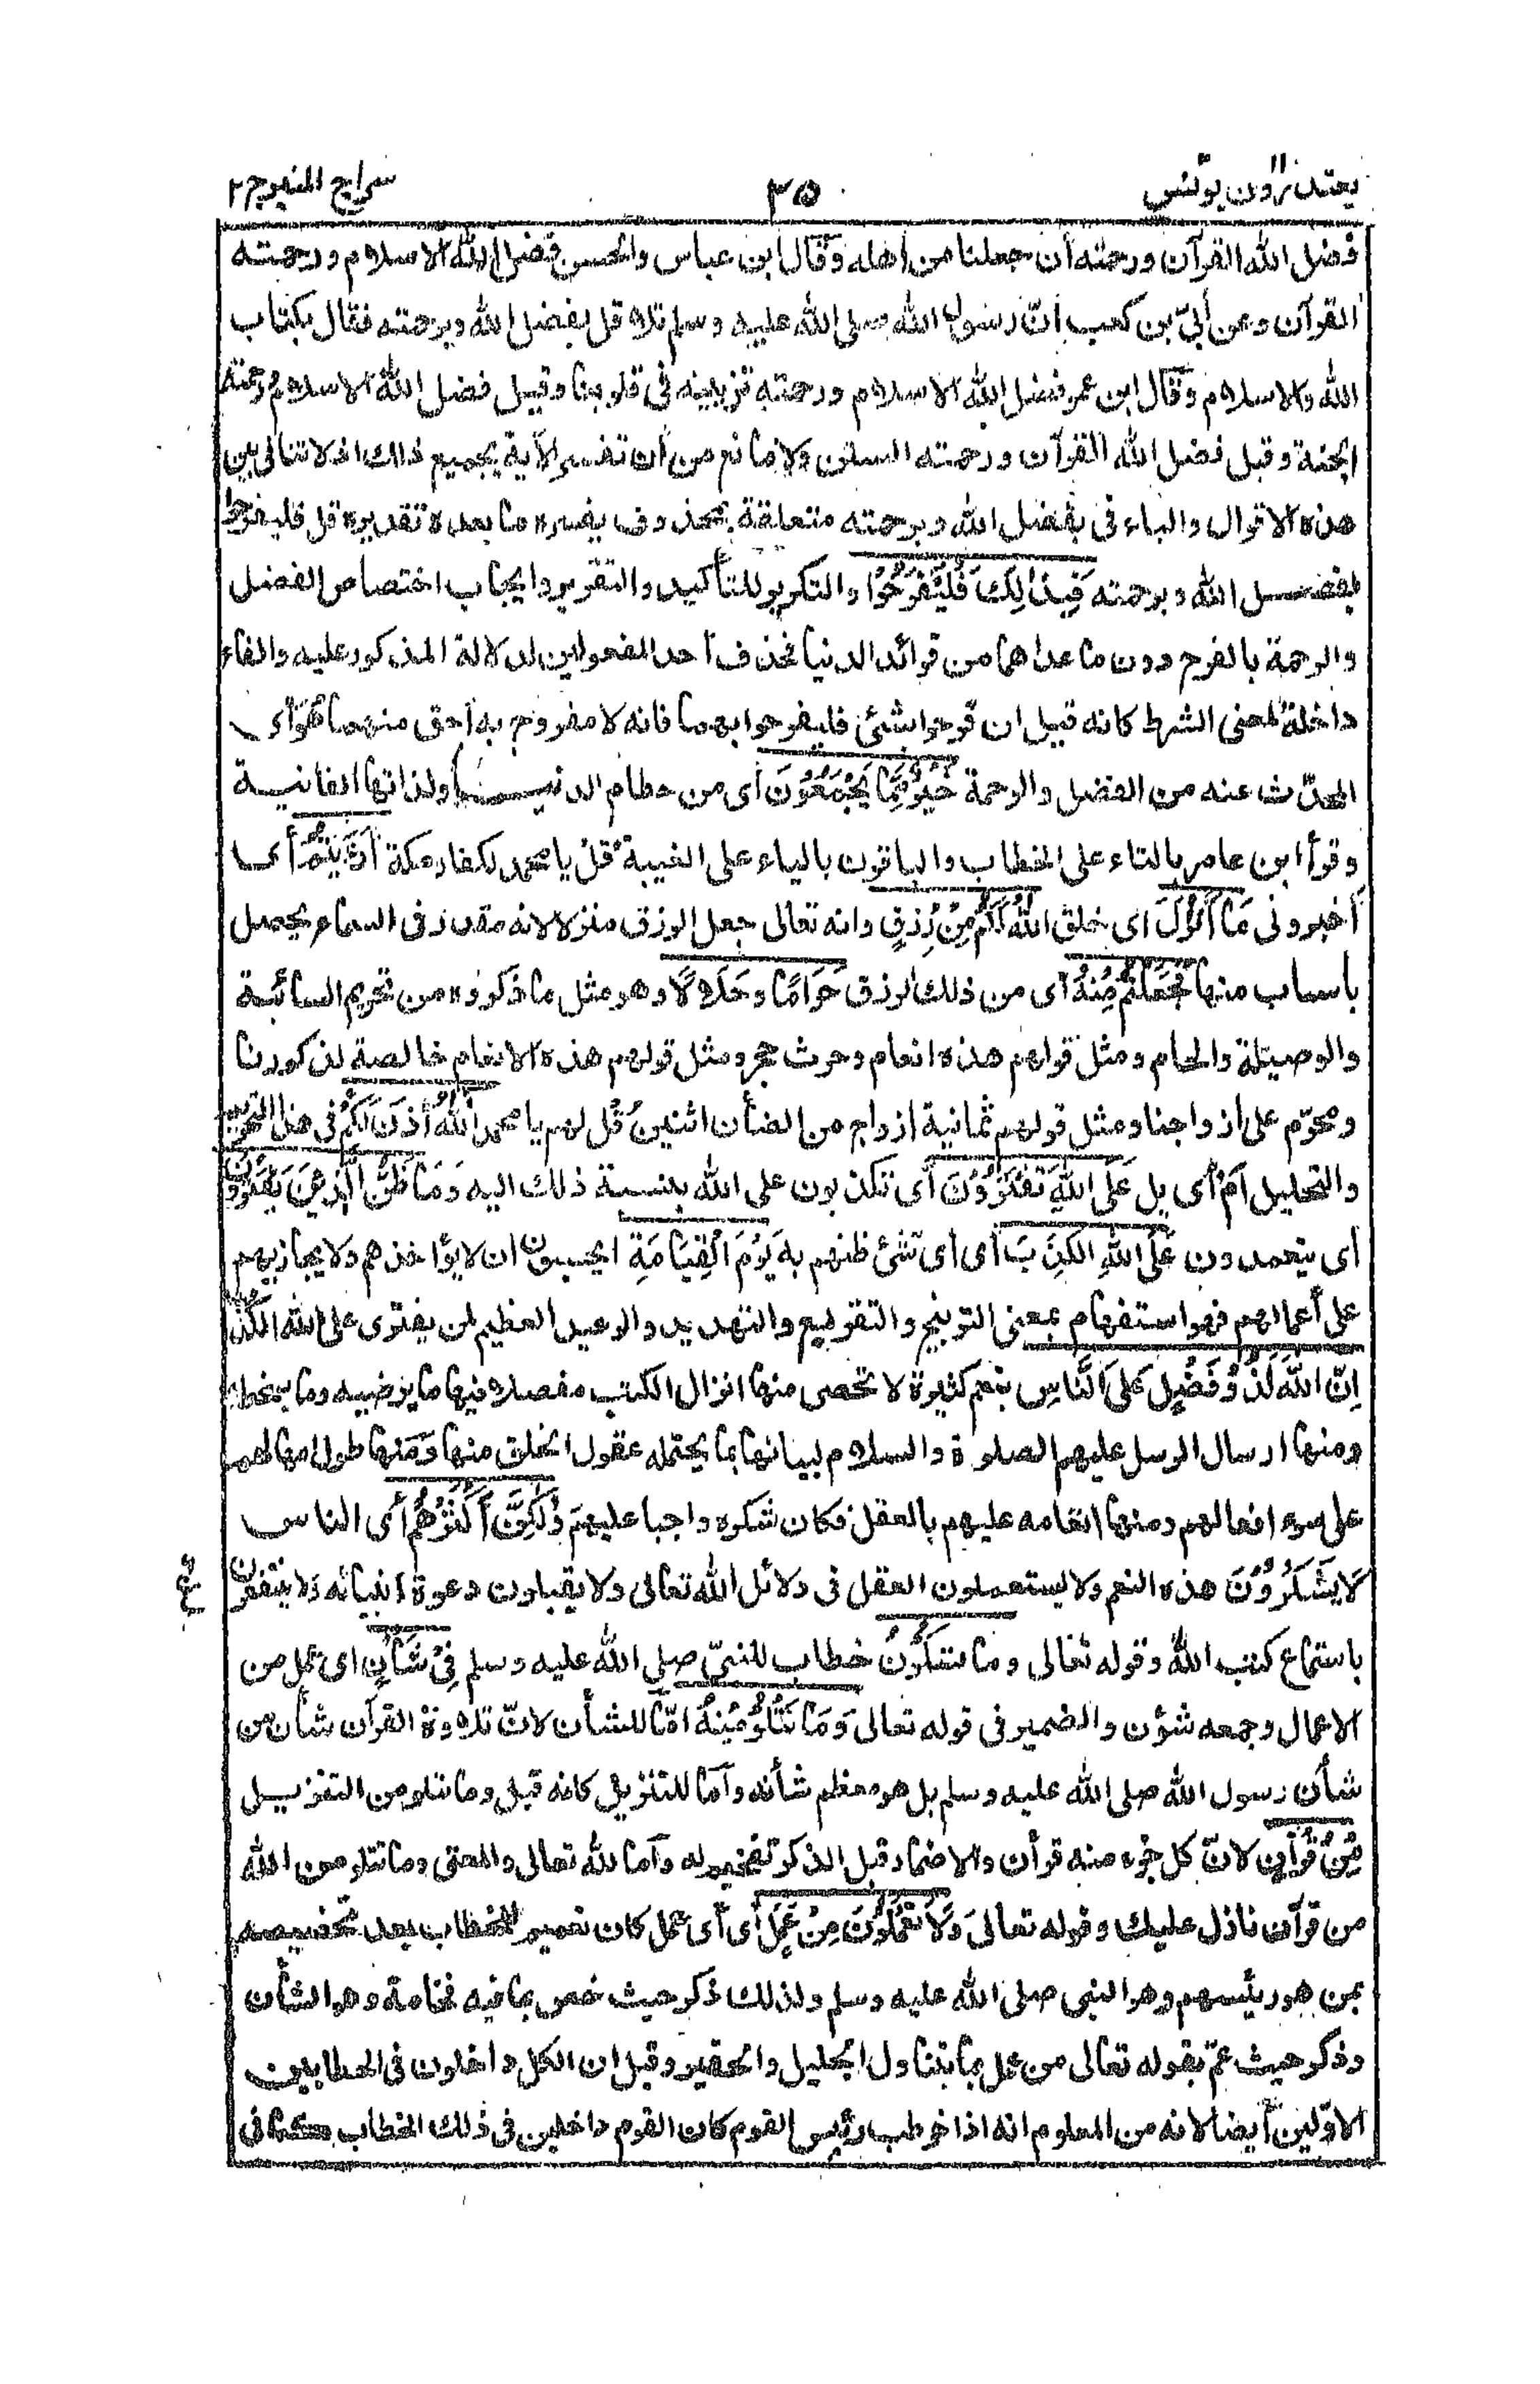 يعتذرون ١١ يونس
٣٥
سراج المنير ج ٢
فضل الله القرآن ورحمته أن جعلنا من أهله وقال ابن عباس والحسن فضل الله الاسلام ورحمته
القرآن وعن أبيّ بن كعب انّ رسول الله صلى الله عليه وسلم تلا قل بفضل الله وبرحمته فقال بكتاب
الله والاسلام وقال ابن عمر فضل الله الاسلام ورحمته تزيينه فى قلوبنا وقيل فضل الله الاسلام ورحمته
الجنة وقيل فضل الله القرآن ورحمته السنن ولا مانع من أن تفسر الآية بجميع ذلك اذ لا تنافى بين
هذه الاقوال والباء فى بفضل الله وبرحمته متعلقة بمحذوف يفسره ما بعده تقديره قل فليفرحوا
بفضل الله وبرحمته فَبِذٰلِكَ فَلْيَفْرَحُوْا والتكرير للتأكيد والتقرير وايجاب اختصاص الفضل
والرحمة بالفرح دون ما عداهما من فوائد الدنيا فحذف أحد الفعولين لدلالة المذكور عليه والفاء
داخلة لمعنى الشرط كانه قيل ان فرحوا بشئ فليفرحوا بهما فانه لا مفروح به أحق منهما هُوَ أى
المحدّث عنه من الفضل والرحمة خَيْرٌ مِّمَّا يَجْمَعُوْنَ أى من حطام الدنيا ولذاتها الفانية
وقرأ ابن عامر بالتاء على الخطاب والباقون بالياء على الغيبة قُلْ يا محمد لكفار مكة أَرَءَيْتُمْ أى
أخبرونى مَا أَنْزَلَ اى خلق اللّٰهُ لَكُمْ مِّنْ رِّزْقٍ وانه تعالى جعل الرزق منزلا لانه مقدر فى السماء يحصل
بأسباب منها فَجَعَلْتُمْ مِّنْهُ أى من ذلك الرزق حَرَامًا وحَلَالًا وهو مثل ما ذكروه من تحريم السائبة
والوصيلة والحام ومثل قولهم هذه انعام وحرث حجر ومثل قولهم هذه الانعام خالصة لذكورنا
ومحرّم على أزواجنا ومثل قولهم ثمانية ازواج من الضأن اثنين قُلْ لهم يا محمد آللّٰهُ أَذِنَ لَكُمْ فى هذا التحريم
والتحليل أَمْ أى بل عَلَى اللّٰهِ تَفْتَرُوْنَ أى تكذبون على الله بنسبة ذلك اليه وَمَا ظَنُّ الَّذِيْنَ يَفْتَرُوْنَ
أى يتعمدون عَلَى اللّٰهِ الكَذِبَ أى أى شئ ظنهم به يَوْمَ الْقِيَامَةِ ايحسبون ان لا يؤاخذهم ولا يجازيهم
على أعمالهم فهو استفهام بمعنى التوبيخ والتقريع والتهديد والوعيد العظيم لمن يفترى على الله الكذب
اِنَّ اللّٰهَ لَذُوْ فَضْلٍ عَلَى النَّاسِ بنعم كثيرة لا تحصى منها انزال الكتب مفصلا فيها ما يرضيه وما يسخطه
ومنها ارسال الرسل عليهم الصلوة والسلام لبيانها بما يحتمله عقول الخلق منها ومنها طول امهالهم
على سوء افعالهم ومنها انعامه عليهم بالعقل فكان شكره واجبا عليهم وَلٰكِنَّ أَكْثَرَهُمْ أى الناس
لَا يَشْكُرُوْنَ هذه النعم ولا يستعملون العقل فى دلائل الله تعالى ولا يقبلون دعوة انبيائه ولا ينتفعون
باستماع كتب الله وقوله تعالى وما تَكُوْنُ خطاب للنبىّ صلى الله عليه وسلم فِىْ شَأْنٍ اى عمل من
الاعمال وجمعه شؤن والضمير فى قوله تعالى وَمَا تَتْلُوْ مِنْهُ امّا للشأن لانّ تلاوة القرآن شأن من
شأن رسول الله صلى الله عليه وسلم بل هو معظم شأنه وأما للتنزيل كانه قيل وما تتلو من التنزيل
مِنْ قُرْآنٍ لانّ كل جزء منه قرأن والاضمار قبل الذكر تفخيم له وأما لله تعالى والمعنى وما تتلو من الله
من قرآن نازل عليك وقوله تعالى وَلَا تَعْمَلُوْنَ مِنْ عَمَلٍ أى أى عمل كان تعميم للخطاب بعد تخصيصه
بمن هو رئيسهم وهو النبى صلى الله عليه وسلم ولذلك ذكر حيث خص بما فيه فخامة وهو الشأن
وذكر حيث عمّ بقوله تعالى من عمل بما يتناول الجليل والحقير وقيل ان الكل داخلون فى الخطابين
الاوّلين أيضا لانه من المعلوم انه اذا خوطب رئيس القوم كان القوم داخلين فى ذلك الخطاب كما فى